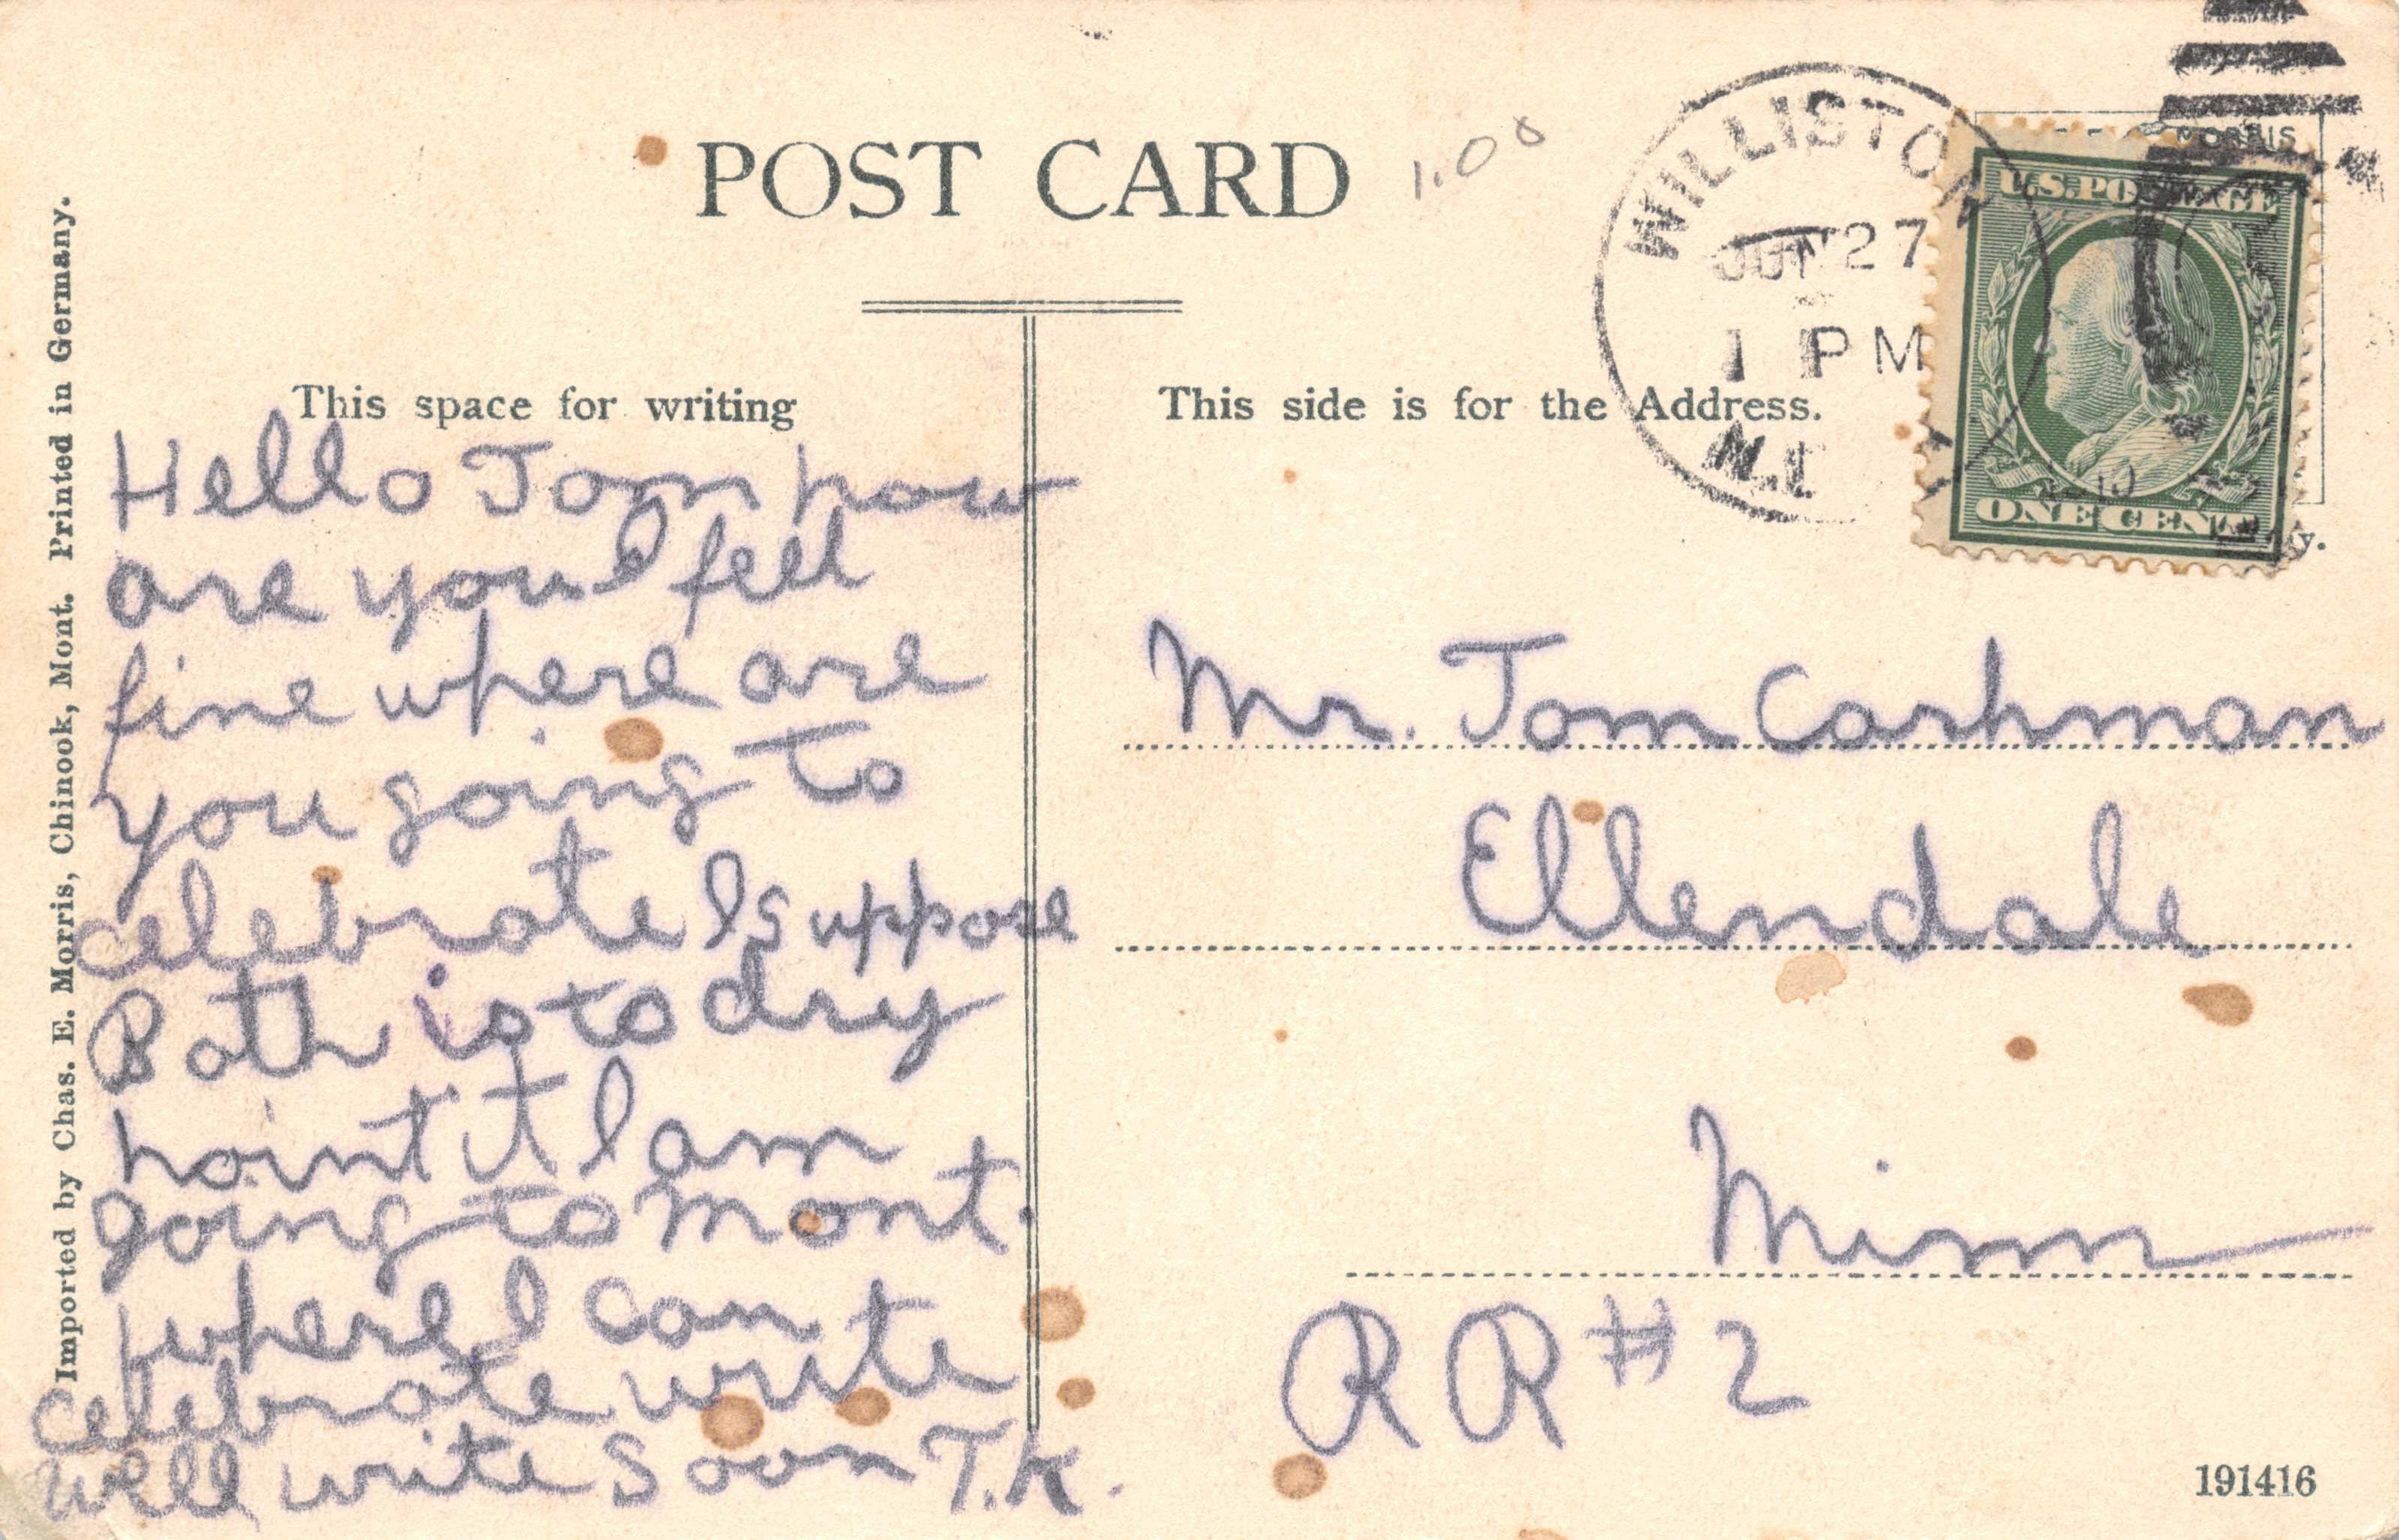 POST CARD
1.00
WILLISTON
JUN 27
1 PM
N.D.
MORRIS
U.S. POSTAGE
ONE CENT
y.
This space for writing
This side is for the Address.
Hello Tom how
are you I feel
fine where are
you going to
celebrate I suppose
Both is to dry
haint it I am
going to Mont.
where I can
celebrate write
well write Soon T.K.
Mr. Tom Cashman
Ellendale
Minn
RR #2
191416
Imported by Chas. E. Morris, Chinook, Mont. Printed in Germany.